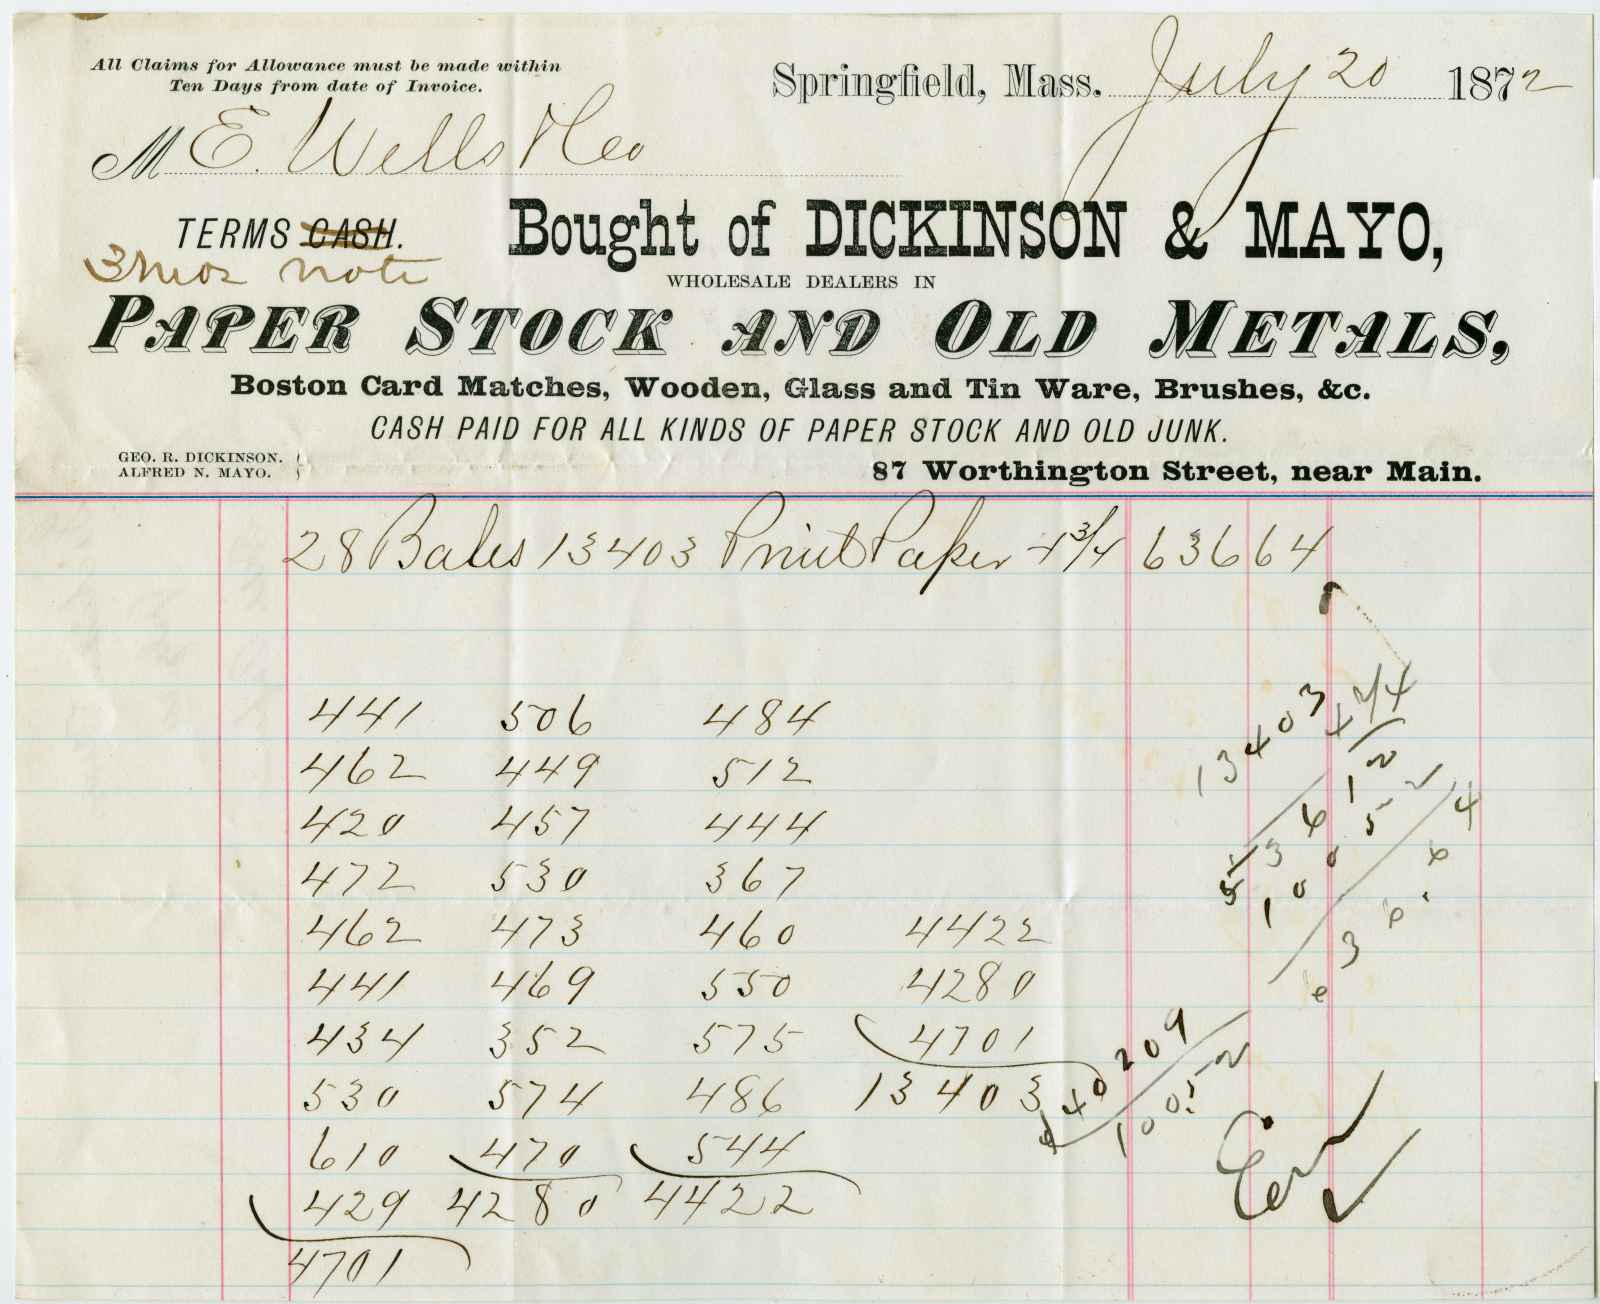 All Claims for Allowance must be made within
Ten Days from date of Invoice.
Springfield, Mass. July 20 1872
M E. Wells & Co
TERMS CASH.
3 mos note
Bought of DICKINSON & MAYO,
WHOLESALE DEALERS IN
PAPER STOCK AND OLD METALS,
Boston Card Matches, Wooden, Glass and Tin Ware, Brushes, &c.
CASH PAID FOR ALL KINDS OF PAPER STOCK AND OLD JUNK.
GEO. R. DICKINSON.
ALFRED N. MAYO.
87 Worthington Street, near Main.
28 Bales 13403 Print Paper 4 3/4 636 64
441 506 484
462 449 512
420 457 444
472 530 367
462 473 460 4422
441 469 550 4280
434 352 575 4701
530 574 486 13403
610 470 544
429 4280 4422
4701
13403
53612
10052
636.64
40209
10052